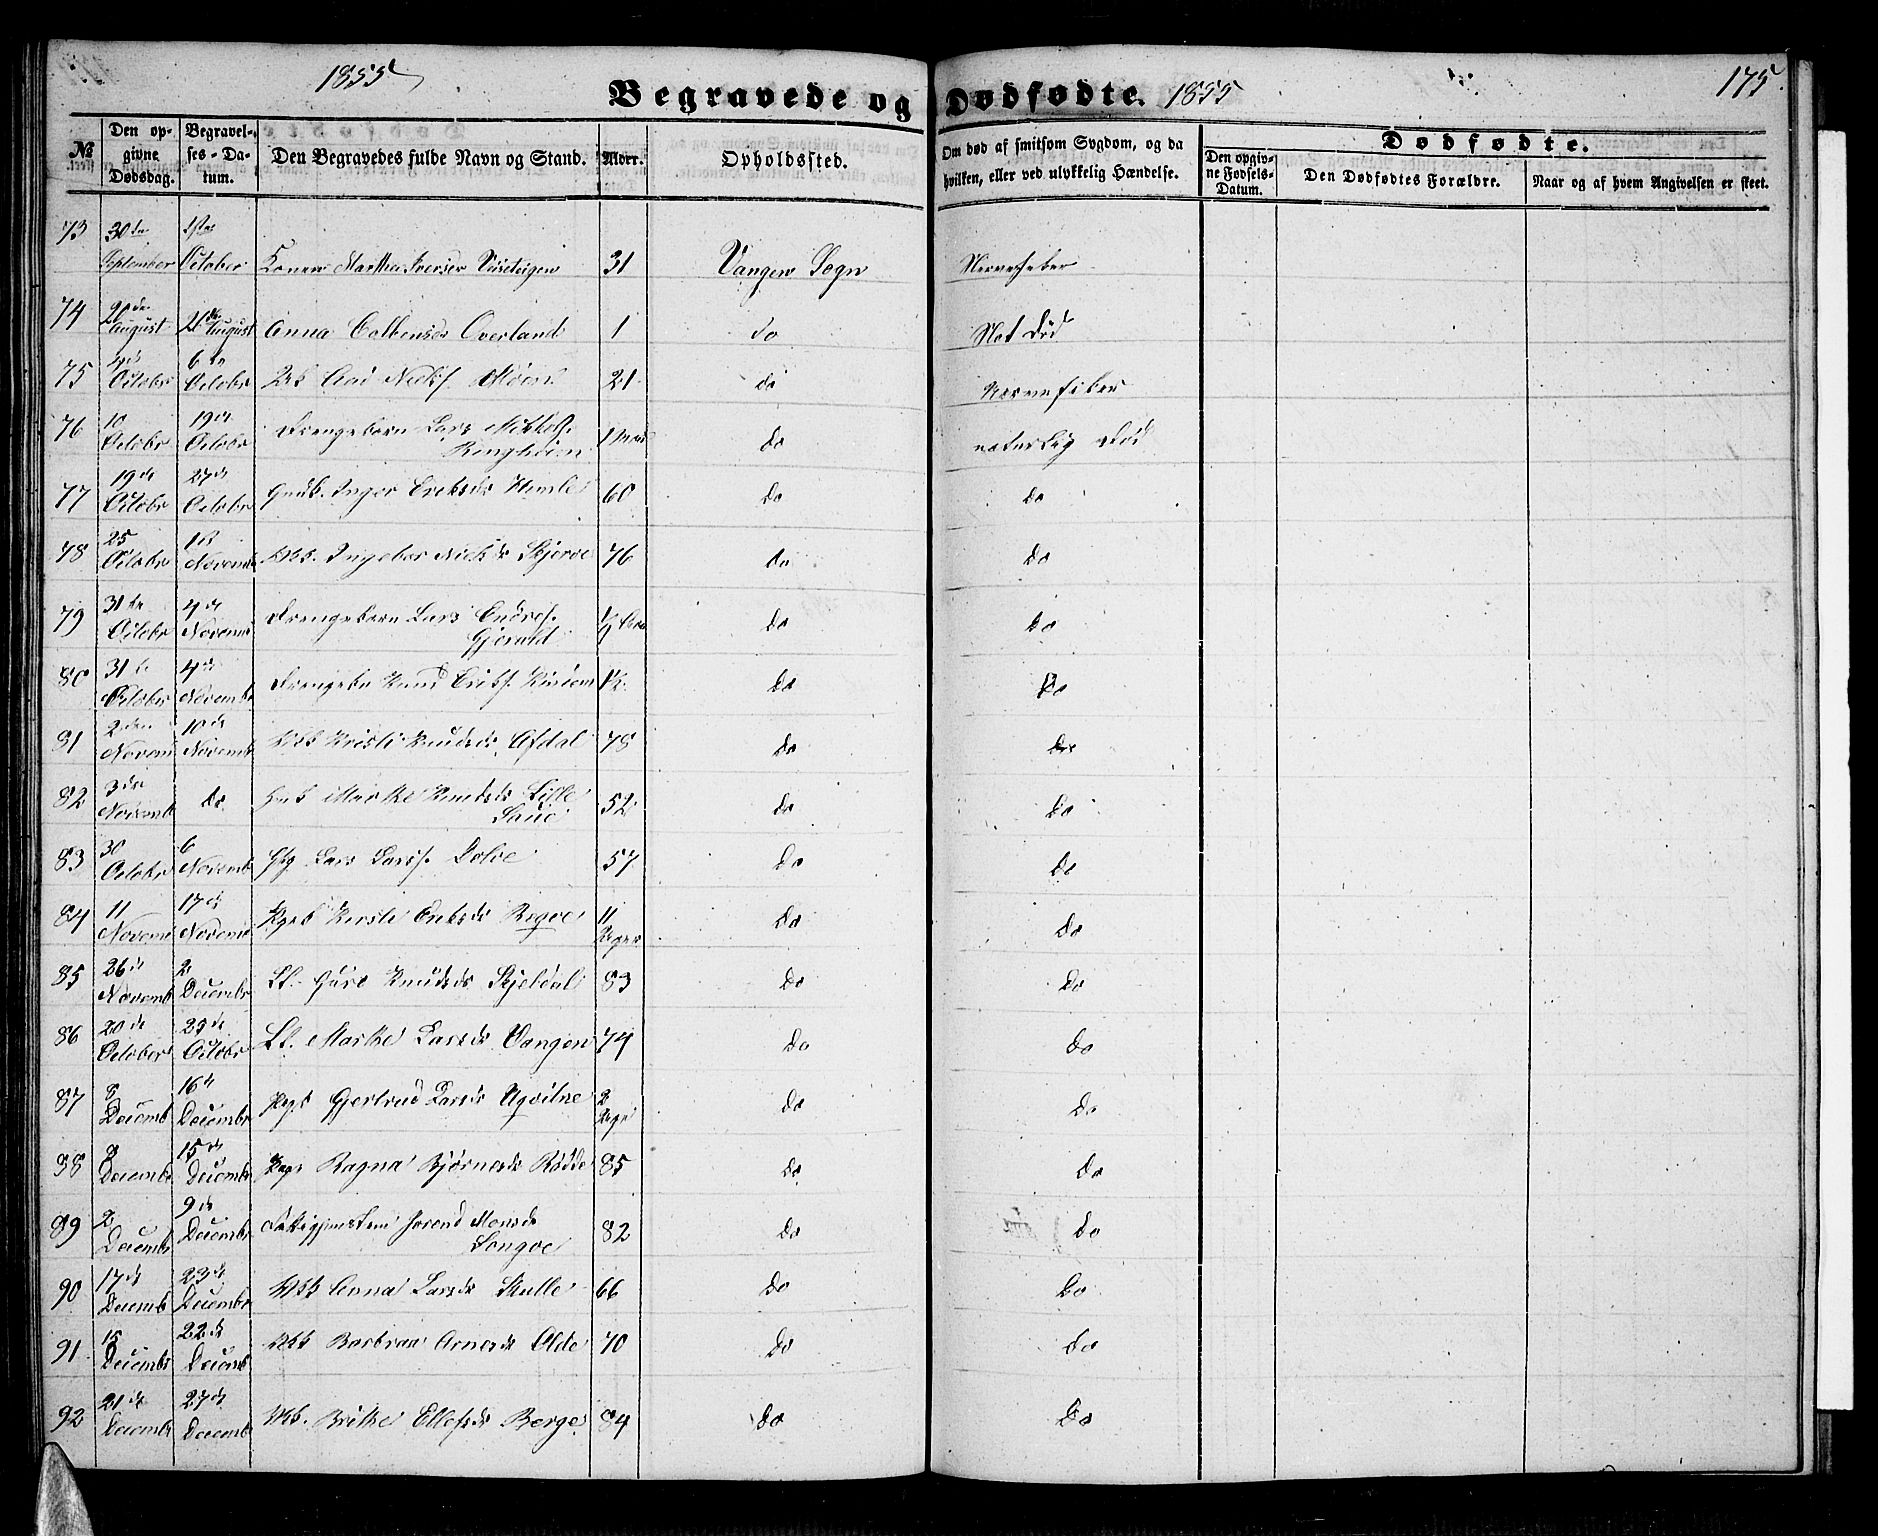 1855
Begravede og Dødfødte. 1855
175.
№
Den opgivne Dødsdag.
Begravelses-Datum.
Den Begravedes fulde Navn og Stand.
Alder.
Opholdssted.
Om død af smitsom Sygdom, og da hvilken, eller ved ulykkelig Hændelse.
Dødfødte.
Den opgivne Fødsels-Datum.
Den Dødfødtes Forældre.
Naar og af hvem Angivelsen er skeet.
73 30te September 1ste October Konen Martha Iversen 31 Vangen Sogn Nervefeber
74 20de August August Anna Colbensdr Overland 1 do Død
75 October 6te Octobr Niels. 21 do Nervefeber
76 10 Octobr 19de Octobr Drengebarn Lars Ringheim do naturlig Død
77 19de Octobr 27de Octobr Inger Eriksdr Himle 60 do do
78 25 Octobr Novemb Ingebor Nielsdr Skjerve 76 do do
79 31te Octobr 4de Novemb Drengebarn Lars Endres. Gjerald do do
80 31te Octobr 4de Novembr Knud Eriks. do do
81 2den Novem 10de Novemb Kristi Knudsdr Afdal 78 do do
82 3die Novemb do Marthe Knudsdr Lille Saue 52 do do
83 30 Octobr 6 Novemb Lars Larss. Dolve 57 do do
84 11 Novemb 17de Novemb Kirsti Eriksdr Rogve 11 Uger do do
85 26de Novemb 2 Decembr Lt. Guro Knudsdr Skjeldal 83 do do
86 20de October Octobr Lt. Marthe Larsdr Vangen 74 do do
87 8 Decemb 16de Decembr Gjertrud Larsdr 2 Uger do do
88 8 Decemb 15de Decembr Ragna Bjørnesdr Rødde 85 do do
89 2 Decemb 9de Decembr Monsdr Longve 82 do do
90 17de Decemb 23de Decembr Anna Larsdr Skulle 66 do do
91 15 Decembr 22de Decemb Barbraa Arnesdr Olde 70 do do
92 21de Decembr 27de Decemb Brithe Ellefsdr Berge 84 do do